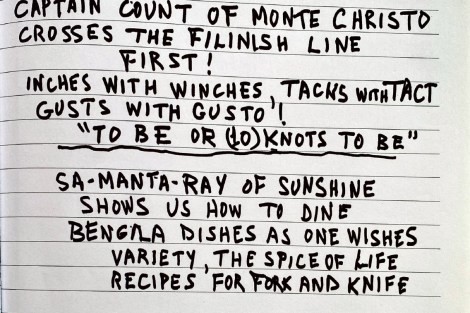 CAPTAIN COUNT OF MONTE CHRISTO
CROSSES THE FILINISH LINE
FIRST!
INCHES WITH WINCHES, TACKS WITH TACT
GUSTS WITH GUSTO'!
"TO BE OR (10) KNOTS TO BE"
SA-MANTA-RAY OF SUNSHINE
SHOWS US HOW TO DINE
BENGLA DISHES AS ONE WISHES
VARIETY, THE SPICE OF LIFE
RECIPES FOR FORK AND KNIFE